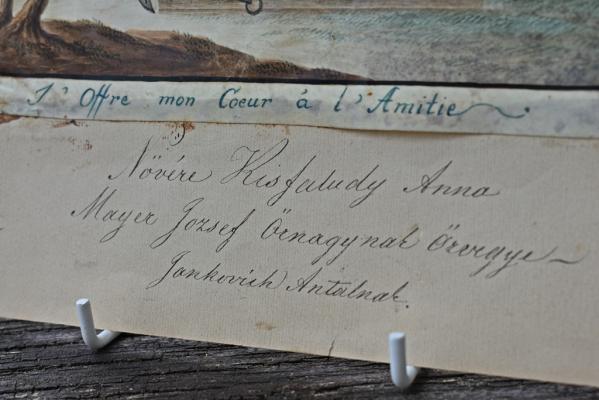 J' Offre mon Coeur á l' Amitie
Növére Kisfaludy Anna
Mayer Jozsef Örnagynak Özvegye –
Jankovich Antalnak.